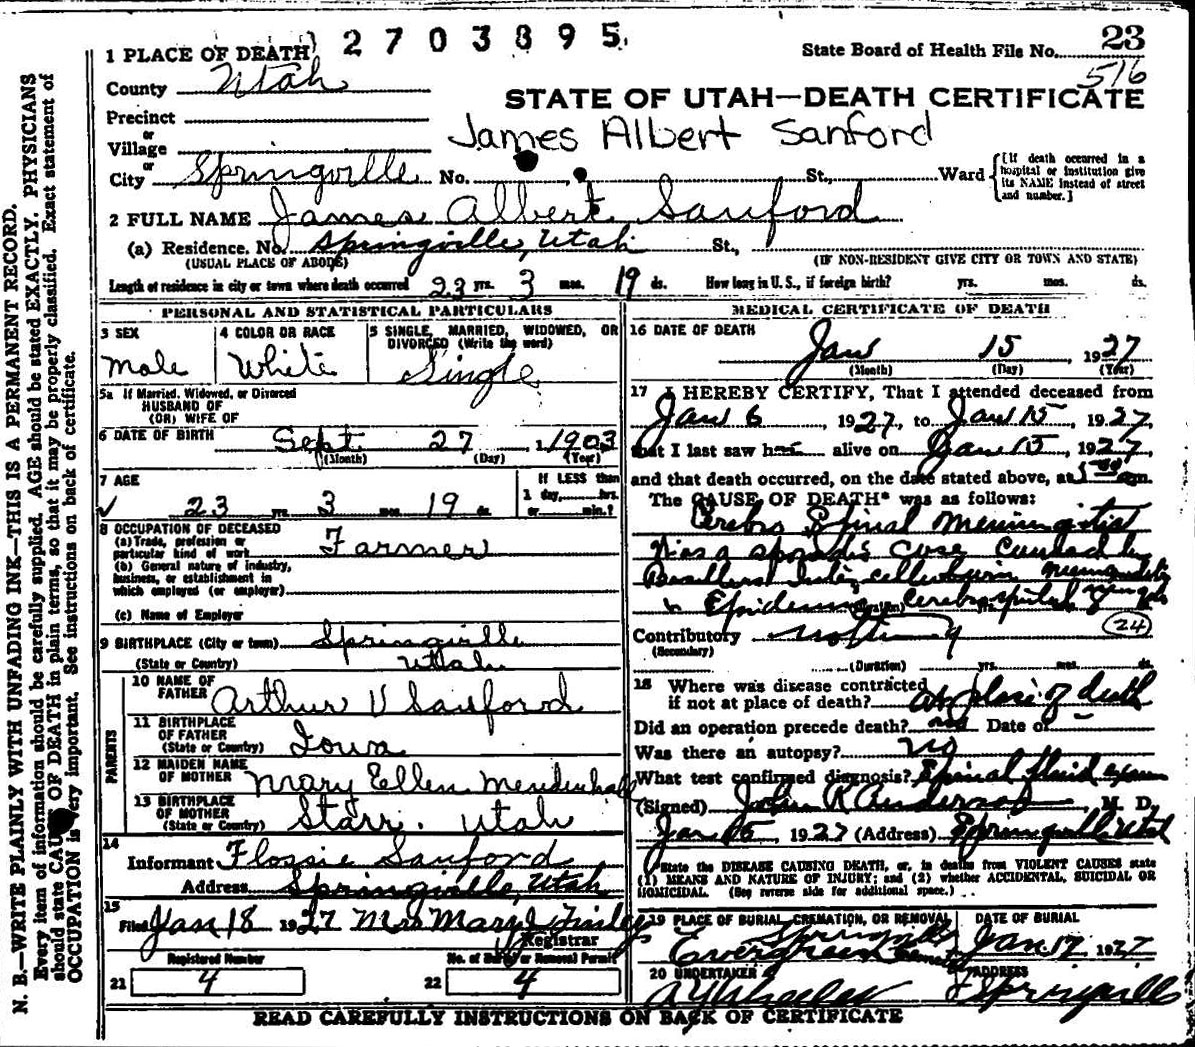 2703895
State Board of Health File No. 23
516
1 PLACE OF DEATH
County Utah
STATE OF UTAH—DEATH CERTIFICATE
Precinct
or
Village
James Albert Sanford
or
City Springville No. St., Ward {[If death occurred in a hospital or institution give its NAME instead of street and number.]
2 FULL NAME James Albert Sanford
(a) Residence. No. Springville, Utah St.,
(USUAL PLACE OF ABODE) (IF NON-RESIDENT GIVE CITY OR TOWN AND STATE)
Length of residence in city or town where death occurred 23 yrs. 3 mos. 19 ds. How long in U. S., if foreign birth? yrs. mos. ds.
PERSONAL AND STATISTICAL PARTICULARS
3 SEX
Male
4 COLOR OR RACE
White
5 SINGLE, MARRIED, WIDOWED, OR DIVORCED (Write the word)
Single
5a If Married, Widowed, or Divorced
HUSBAND OF
(OR) WIFE OF
6 DATE OF BIRTH Sept 27 1903
(Month) (Day) (Year)
7 AGE
23 yrs. 3 mos. 19 ds.
If LESS than
1 day, hrs.
or min.?
8 OCCUPATION OF DECEASED
(a) Trade, profession or
particular kind of work Farmer
(b) General nature of industry,
business, or establishment in
which employed (or employer)
(c) Name of Employer
9 BIRTHPLACE (City or town) Springville
(State or Country) Utah
PARENTS
10 NAME OF FATHER Arthur V Sanford
11 BIRTHPLACE OF FATHER
(State or Country) Iowa
12 MAIDEN NAME OF MOTHER Mary Ellen Mendenhall
13 BIRTHPLACE OF MOTHER
(State or Country) Starr. Utah
14
Informant Flossie Sanford
Address Springville, Utah
15
Filed Jan 18 1927 Mrs Mary J Finley
Registrar
Registered Number
21 4
No. of Burial or Removal Permit
22 4
MEDICAL CERTIFICATE OF DEATH
16 DATE OF DEATH
Jan 15, 1927
(Month) (Day) (Year)
17 I HEREBY CERTIFY, That I attended deceased from
Jan 6, 1927, to Jan 15, 1927,
that I last saw h alive on Jan 15, 1927,
and that death occurred, on the date stated above, at m.
The CAUSE OF DEATH* was as follows:
Cerebro Spinal Meningitis
Was a sporadic case caused by
Epidemic Cerebrospinal
Contributory nothing 24
(Secondary)
(Duration) yrs. mos. ds.
18 Where was disease contracted
if not at place of death? at place of death
Did an operation precede death? no Date of –
Was there an autopsy? no
What test confirmed diagnosis? Spinal fluid exam
(Signed) John R Anderson, M. D.
Jan 15, 1927 (Address) Springville Utah
*State the DISEASE CAUSING DEATH, or, in deaths from VIOLENT CAUSES state (1) MEANS AND NATURE OF INJURY; and (2) whether ACCIDENTAL, SUICIDAL OR HOMICIDAL. (See reverse side for additional space.)
19 PLACE OF BURIAL, CREMATION, OR REMOVAL
Springville
Evergreen Cemetery
DATE OF BURIAL
Jan 17 1927
20 UNDERTAKER
A Y Wheeler
ADDRESS
Springville
READ CAREFULLY INSTRUCTIONS ON BACK OF CERTIFICATE
N. B.—WRITE PLAINLY WITH UNFADING INK—THIS IS A PERMANENT RECORD.
Every item of information should be carefully supplied. AGE should be stated EXACTLY. PHYSICIANS
should state CAUSE OF DEATH in plain terms, so that it may be properly classified. Exact statement of
OCCUPATION is very important. See instructions on back of certificate.